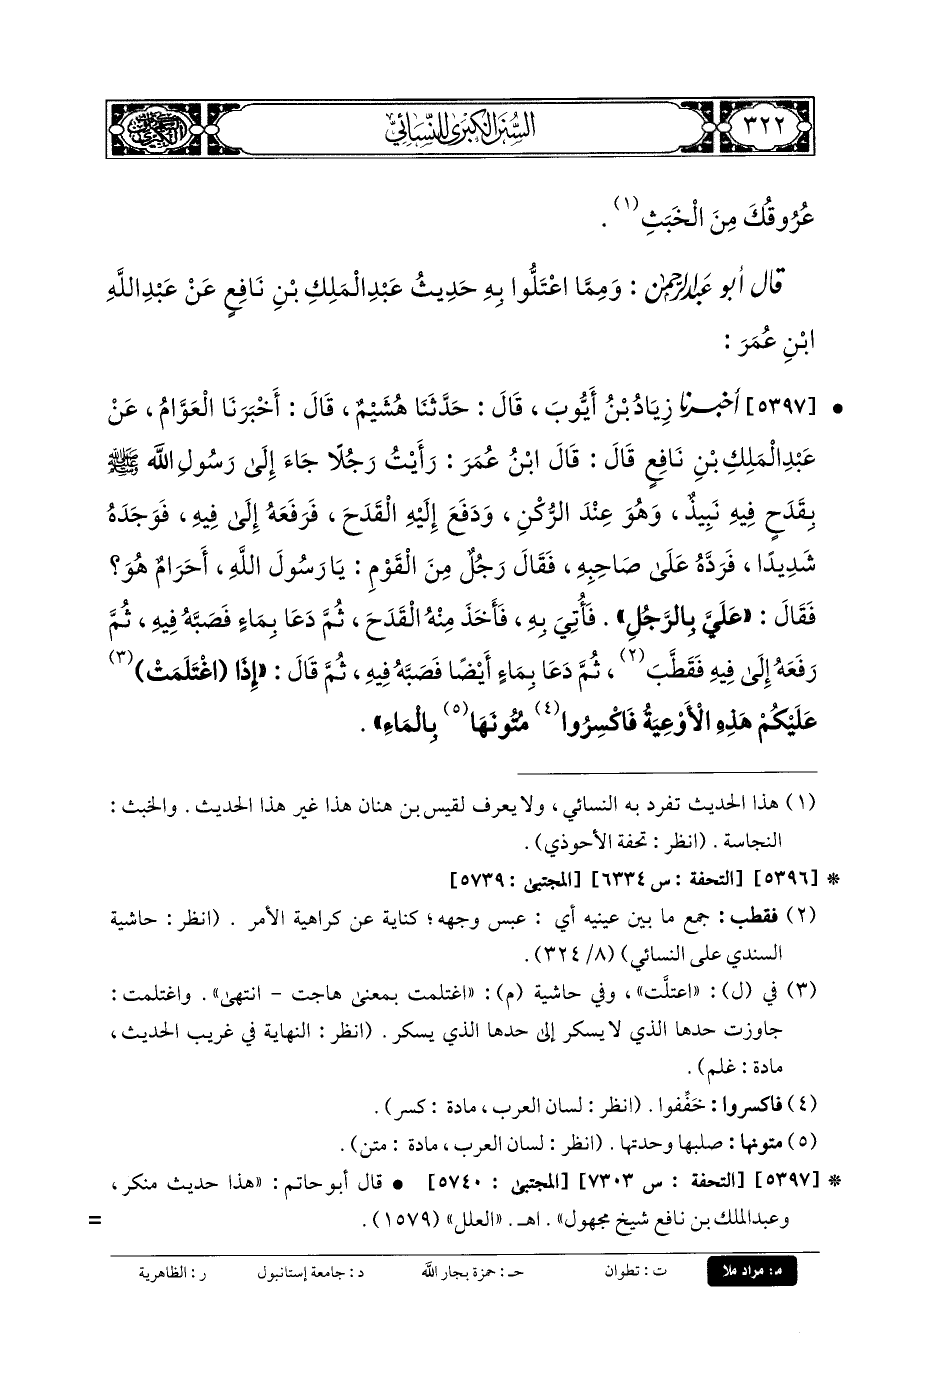 ٣٢٢
السنن الكبرى للنسائي
عُرُوقُكَ مِنَ الْخَبَثِ(١) .
قال أبو عبد الرحمن : وَمِمَّا اعْتَلُّوا بِهِ حَدِيثُ عَبْدِالْمَلِكِ بْنِ نَافِعٍ عَنْ عَبْدِاللَّهِ
ابْنِ عُمَرَ :
• [٥٣٩٧] أخبرنا زِيَادُ بْنُ أَيُّوبَ ، قَالَ : حَدَّثَنَا هُشَيْمٌ ، قَالَ : أَخْبَرَنَا الْعَوَّامُ ، عَنْ
عَبْدِالْمَلِكِ بْنِ نَافِعٍ قَالَ : قَالَ ابْنُ عُمَرَ : رَأَيْتُ رَجُلًا جَاءَ إِلَى رَسُولِ اللَّه ﷺ
بِقَدَحٍ فِيهِ نَبِيذٌ ، وَهُوَ عِنْدَ الرُّكْنِ ، وَدَفَعَ إِلَيْهِ الْقَدَحَ ، فَرَفَعَهُ إِلَى فِيهِ ، فَوَجَدَهُ
شَدِيدًا ، فَرَدَّهُ عَلَى صَاحِبِهِ ، فَقَالَ رَجُلٌ مِنَ الْقَوْمِ : يَا رَسُولَ اللَّهِ ، أَحَرَامٌ هُوَ؟
فَقَالَ : «عَلَيَّ بِالرَّجُلِ» . فَأُتِيَ بِهِ ، فَأَخَذَ مِنْهُ الْقَدَحَ ، ثُمَّ دَعَا بِمَاءٍ فَصَبَّهُ فِيهِ ، ثُمَّ
رَفَعَهُ إِلَى فِيهِ فَقَطَّبَ(٢) ، ثُمَّ دَعَا بِمَاءٍ أَيْضًا فَصَبَّهُ فِيهِ ، ثُمَّ قَالَ : «إِذَا (اغْتَلَمَتْ)(٣)
عَلَيْكُمْ هَذِهِ الْأَوْعِيَةُ فَاكْسِرُوا(٤) مُتُونَهَا(٥) بِالْمَاءِ» .
(١) هذا الحديث تفرد به النسائي ، ولا يعرف لقيس بن هنان هذا غير هذا الحديث . والخبث :
النجاسة . (انظر : تحفة الأحوذي) .
* [٥٣٩٦] [التحفة : س ٦٣٣٤] [المجتبى : ٥٧٣٩]
(٢) فقطب : جمع ما بين عينيه أي : عبس وجهه؛ كناية عن كراهية الأمر . (انظر : حاشية
السندي على النسائي) (٨/ ٣٢٤) .
(٣) في (ل) : «اعتلَّت» ، وفي حاشية (م) : «اغتلمت بمعنى هاجت - انتهى» . واغتلمت :
جاوزت حدها الذي لا يسكر إلى حدها الذي يسكر . (انظر : النهاية في غريب الحديث ،
مادة : غلم) .
(٤) فاكسروا : خَفِّفوا . (انظر : لسان العرب ، مادة : كسر) .
(٥) متونها : صلبها وحدتها . (انظر : لسان العرب ، مادة : متن) .
* [٥٣٩٧] [التحفة : س ٧٣٠٣] [المجتبى : ٥٧٤٠] • قال أبو حاتم : «هذا حديث منكر ،
وعبدالملك بن نافع شيخ مجهول» . اهـ . «العلل» (١٥٧٩) . =
م: مراد ملا ت : تطوان حـ : حمزة بجار الله د : جامعة إستانبول ر : الظاهرية